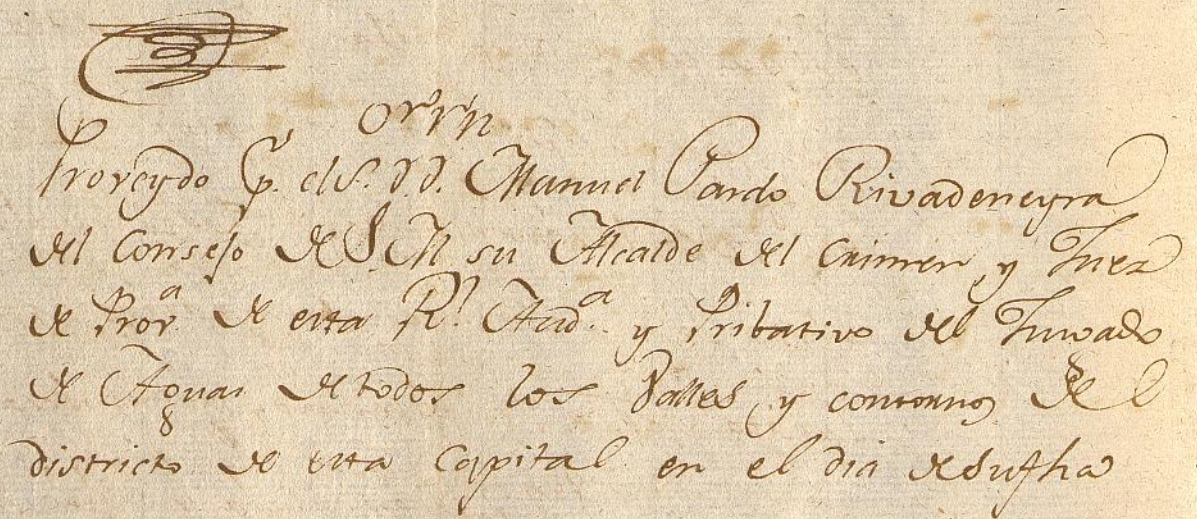 Proveydo p.r el S. D.D. Manuel Pardo Rivadeneyra
del Consejo de S. M su Alcalde del Crimen y Juez
de Prov.a de esta R.l Aud.a y Pribativo del Jusgado
de Aguas de todos los Valles y contornos de el
districto de esta Capital en el dia de su fha